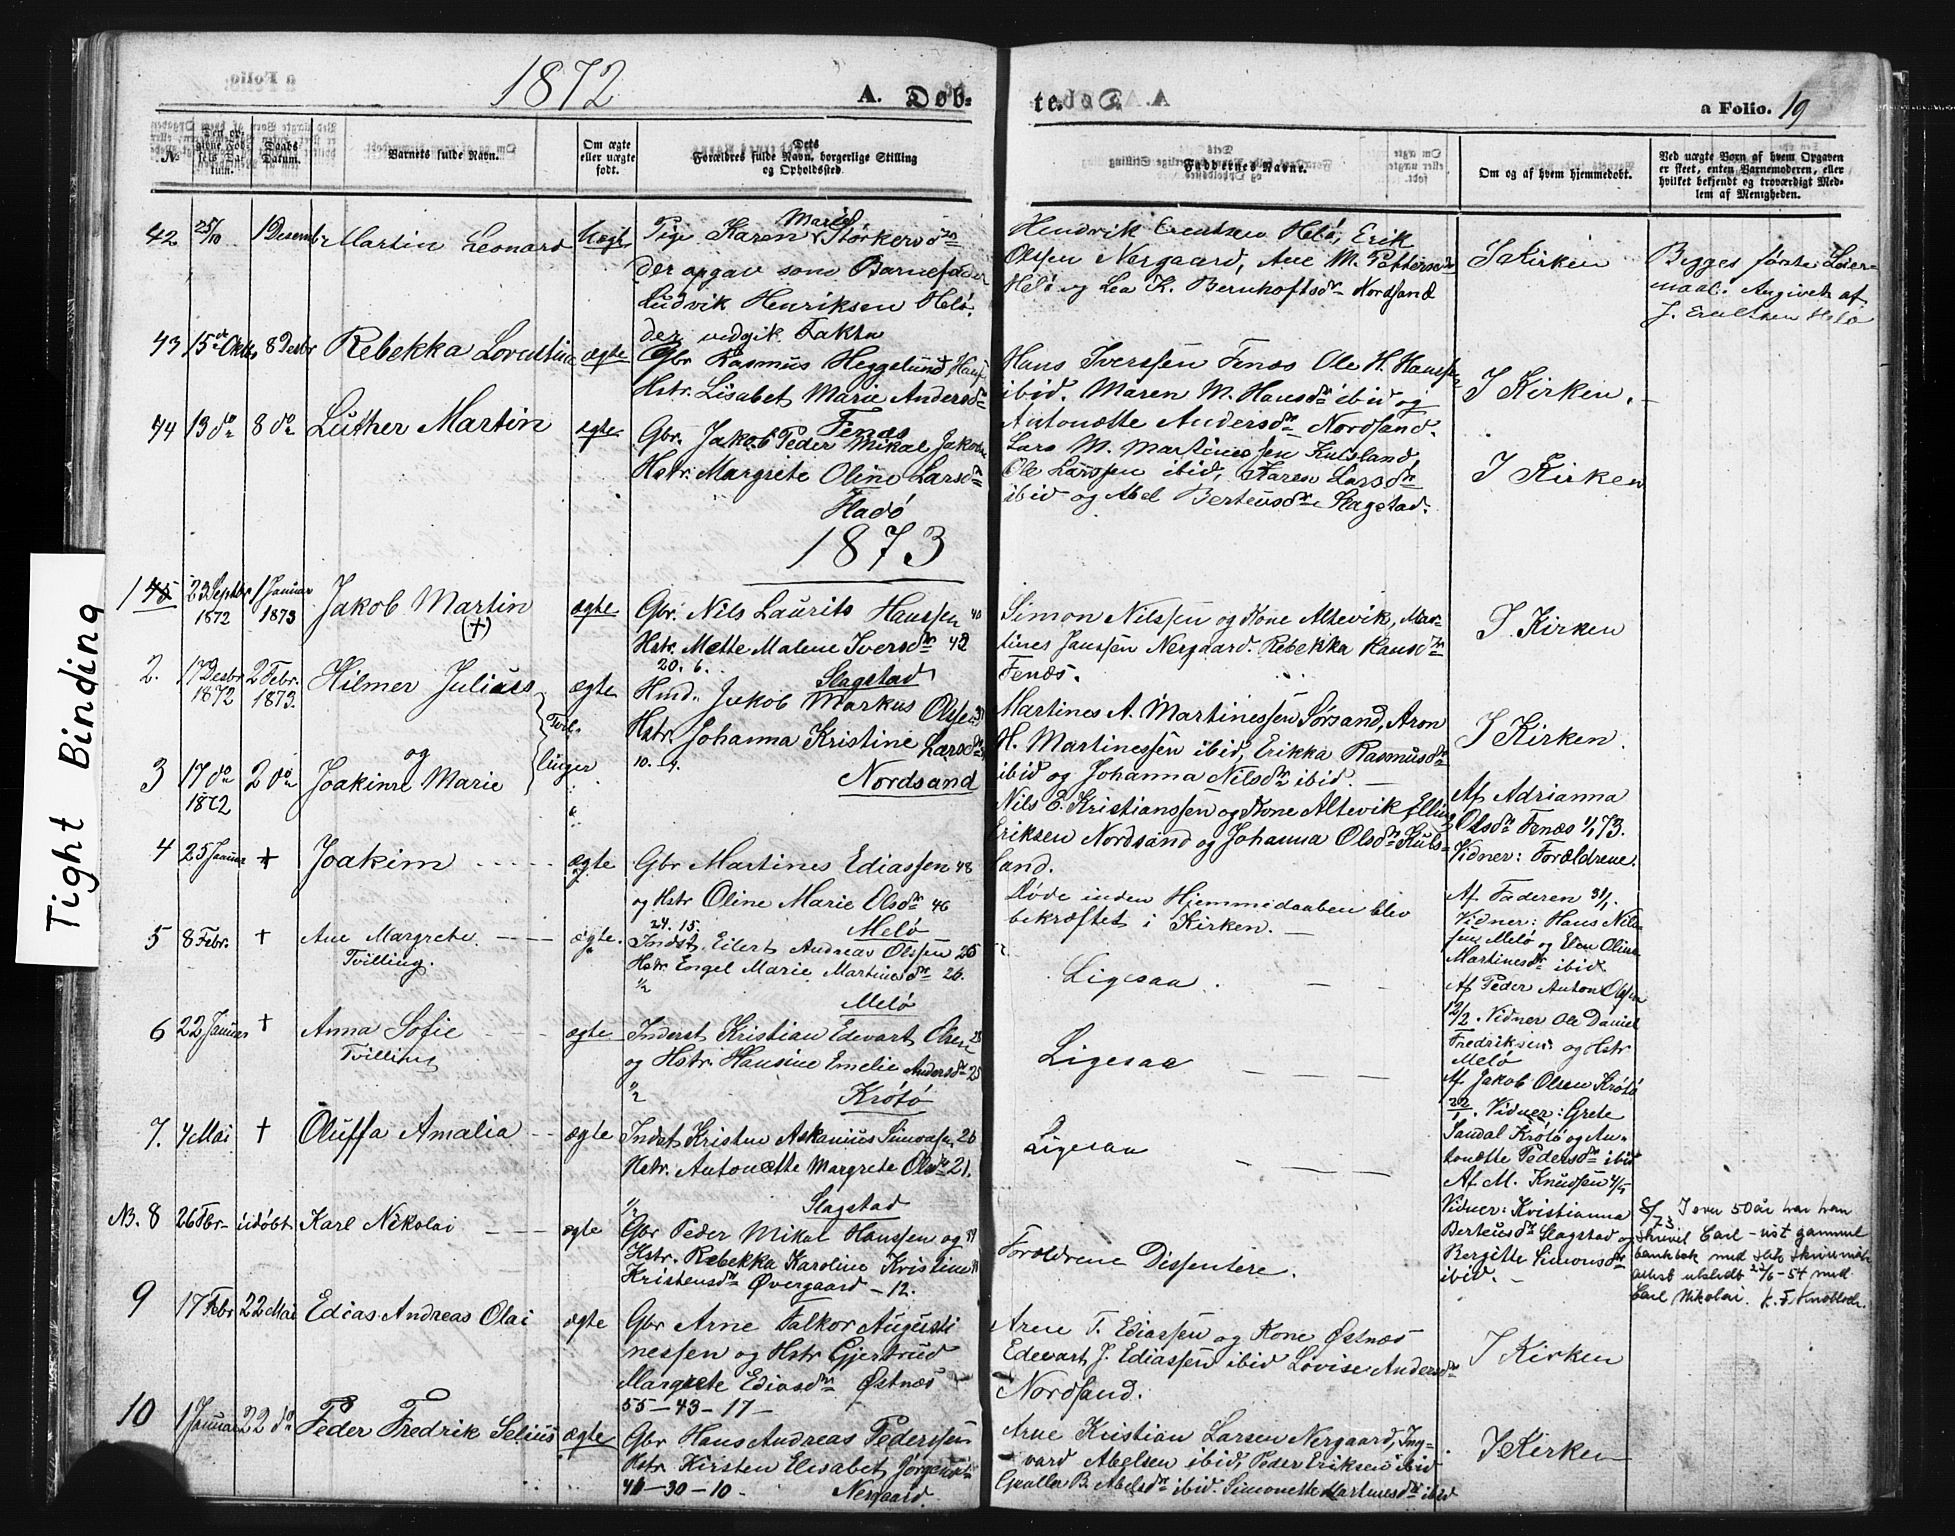 1872
A. Døb-
te.
a Folio. 19
No
Daabs Datum.
Barnets fulde Navn.
Om ægte eller uægte født.
Dets Forældres fulde Navn, borgerlige Stilling og Opholdssted.
Faddernes Navne.
Om og af hvem hjemmedøbt.
Ved uægte Børn af hvem Opgaven er skeet, enten Barnemoderen, eller hvilket bekjendt og troværdigt Medlem af Menigheden.
42 25/10 1 Desembr Martin Leonard Uægte
Pige Karen Marie Størkersdr
der opgav som Barnefader
Ludvik Henriksen Helø,
der vedgik Fakta
Hendrik Helø, Erik
Olssen Nergaard, Ane M. Pettersdr
Helø og Lea K. Bernhoftsdr Nordsand
I Kirken
Begges første Leier-
maal. Angivet af
43 15de Oktbr 8 Desbr Rebekka Lovattine ægte
Gbr Rasmus Heggelund
Hstr. Lisabet Marie Andersdr
Fenæs
Hans Iverssen Fenæs Ole H. Hanssen
ibid. Maren M. Hansdr ibid og
Antonætte Andersdr Nordsand.
I Kirken.
44 13 do 8 do Luther Martin ægte
Gbr. Jakob Peder Mikal Jakobsen
Hstr. Margrete Oline Larsdr
Fladø
Lars M. Martinessen
Ole Larssen ibid, Karen Larsdr
ibid og Abel Berteusdr Slagstad.
I Kirken
1873
1 45 23 Septbr 1872 1 Januar 1873 Jakob Martin (+) ægte
Gbr. Nils Laurits Hanssen 40
Hstr. Mette Malene Iversdr 42
20. 6. Slagstad
Simon Nilssen og Kone Altevik, Mar-
tines Janssen Nergaard. Rebekka Hansdr
Fenæs.
I Kirken
2. 17 Desbr 1872 2 Febr. 1873. Hilmer Julius ægte
og Tvil-
linger
3 17 do 1872 2 do Joakime Marie
Hmd. Jakob Markus Olssen
Hstr. Johanna Kristine Larsdr
10. 4. Nordsand
Martines A. Martinessen Sørsand, Aron
H. Martinessen ibid, Erikka Rasmusdr
ibid og Johanna Nilsdr ibid.
I Kirken.
Nils E. Kristianssen og Kone Altevik Elling
Eriksen Nordsand og Johanna Olsdr Kuls-
land.
Af Adrianna
Olsdr Fenæs 1/1 73.
Vidner: Forældrene.
4 25 Januar + Joakim ægte
Gbr Martines Ediassen 48
og Hstr Oline Marie Olsdr 46
24. 15. Melø
Døde inden Hjemmedaaben blev
bekræftet i Kirken.
Af Faderen 31/1.
Vidner: Hans Nils-
sen Melø og Elen Olina
Martinesdr ibid.
5 8 Febr. + Ane Margrete ægte.
Tvilling.
Indst. Eilert Andreas Olssen 25
Hstr Engel Marie Martinesdr 26.
1/2 Melø
Ligesaa.
Af Peder Anton Olssen
12/2. Vidner Ole Daniel
Fredriksen og Hstr
Melø
6 22 Januar + Anna Sofie ægte
Tvilling
Inderst Kristian Edevart Olsen 28
og Hstr. Hansine Emelie Andersdr 25
1/2 Krøtø
Ligesaa
Af Jakob Olsen Krøtø
22/1. Vidner: Grete
Sandal Krøtø og An-
tonætte Pedersdr ibid
7. 4 Mai + Oluffa Amalia ægte
Indst Kristen Askanius Simonsen 26
Hstr. Antonætte Margrete Olsdr 21.
1/2 Slagstad
Ligesaa
Af M. Knudsen 4/5
Vidner: Kristianna
Berteusdr Slagstad og
Bergitte Simonsdr
ibid.
NB. 8 26 Fbr udøbt Karl Nikolai ægte
Gbr Peder Mikal Hanssen og
Hstr. Rebekka Karoline Kristine
Kristensdr Øvergaard - 12.
Forældrene Dissentere.
8/73 I over 50 år har han
skrevet Carl - vist gammel
bankbok med
attest utstedt 23/6-54 med
Carl Nikolai.
9 17 Febr 22 Mai Edias Andreas Olai ægte
Gbr Arne Falkor Augusti
nessen og Hstr Gjertrud
Margrete Ediasdr Østnæs
55-43-17-
Arne T. Ediassen og Kone Østnæs
Edevart J. Ediassen ibid Lovise Andersdr
Nordsand.
I Kirken
10 1 Januar 22 do Peder Fredrik Selius ægte
Gbr Hans Andreas Pederssen
Hstr. Kirsten Elisabet Jørgensdr
41-30-10- Nergaard.
Arne Kristian Larsen Nergaard, Ing-
vard Abelsen ibid, Peder Eriksen ibid
B. Abelsdr ibid. Simonette Martinesdr ibid
I Kirken
Tight Binding